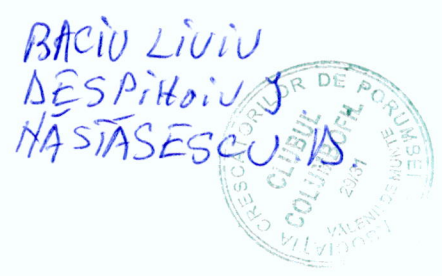 BACIU LIVIU
DESPIHOIU J
NĂSTĂSESCU VS.
ASOCIAȚIA CRESCĂTORILOR DE PORUMBEI
CLUBUL
COLUMBOFIL
29/31
VALENII DE MUNTE